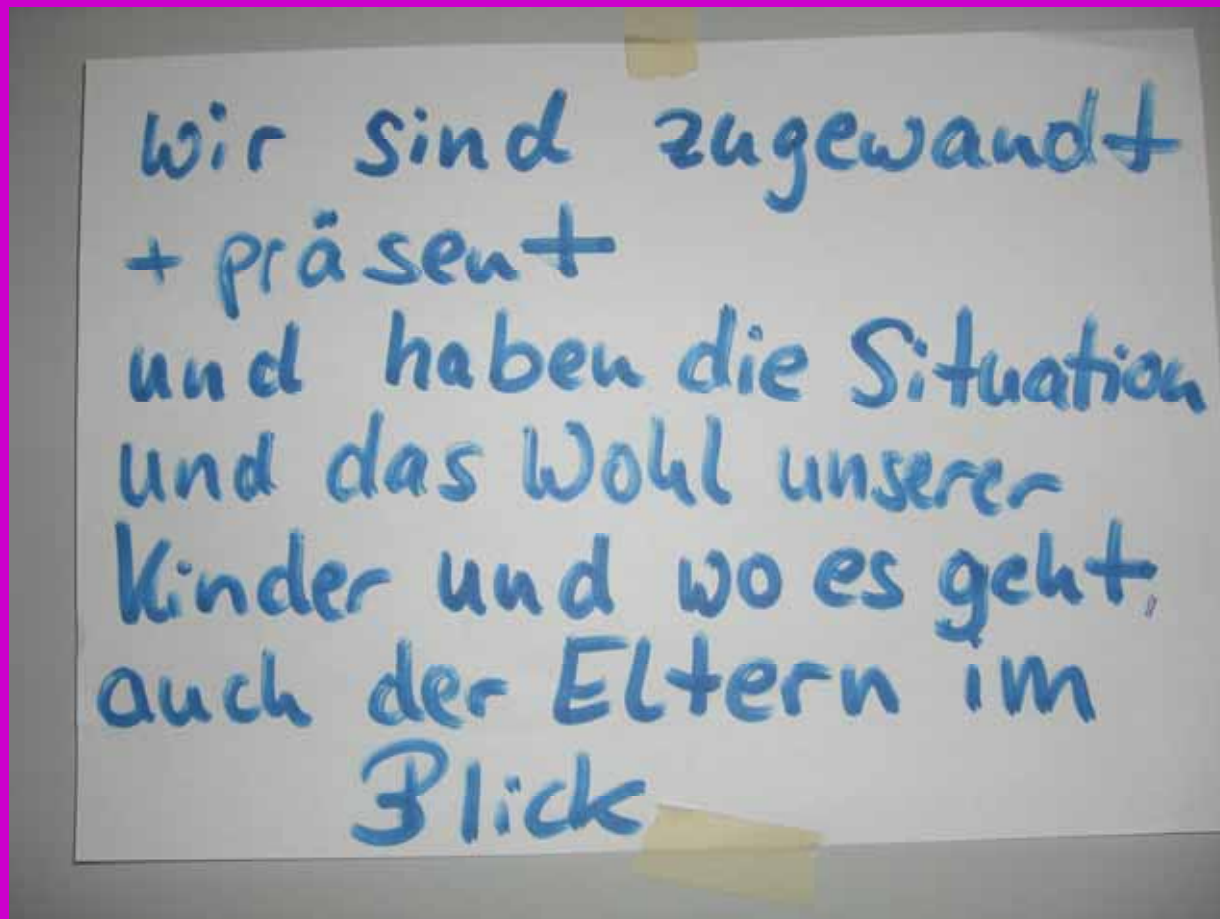 Wir sind zugewandt
+ präsent
und haben die Situation
und das Wohl unserer
Kinder und wo es geht,
auch der Eltern im
Blick